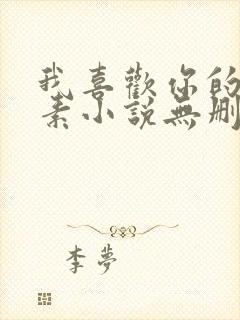 我喜歡你的
素小說無刪
李夢